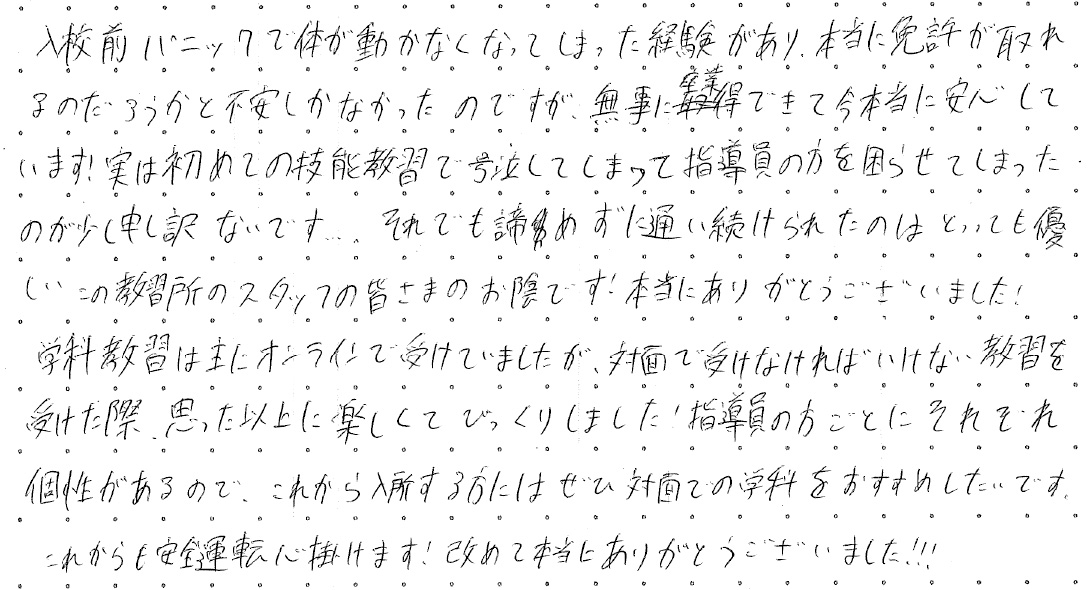 入校前パニックで体が動かなくなってしまった経験があり、本当に免許が取れ
るのだろうかと不安しかなかったのですが、無事に卒業できて今本当に安心して
います!実は初めての技能教習で号泣してしまって指導員の方を困らせてしまった
のが少し申し訳ないです…。それでも諦めずに通い続けられたのはとっても優
しいこの教習所のスタッフの皆さまのお陰です!本当にありがとうございました!
学科教習は主にオンラインで受けていましたが、対面で受けなければいけない教習を
受けた際、思った以上に楽しくてびっくりしました!指導員の方ごとにそれぞれ
個性があるので、これから入所する方にはぜひ対面での学科をおすすめしたいです。
これからも安全運転心掛けます!改めて本当にありがとうございました!!!